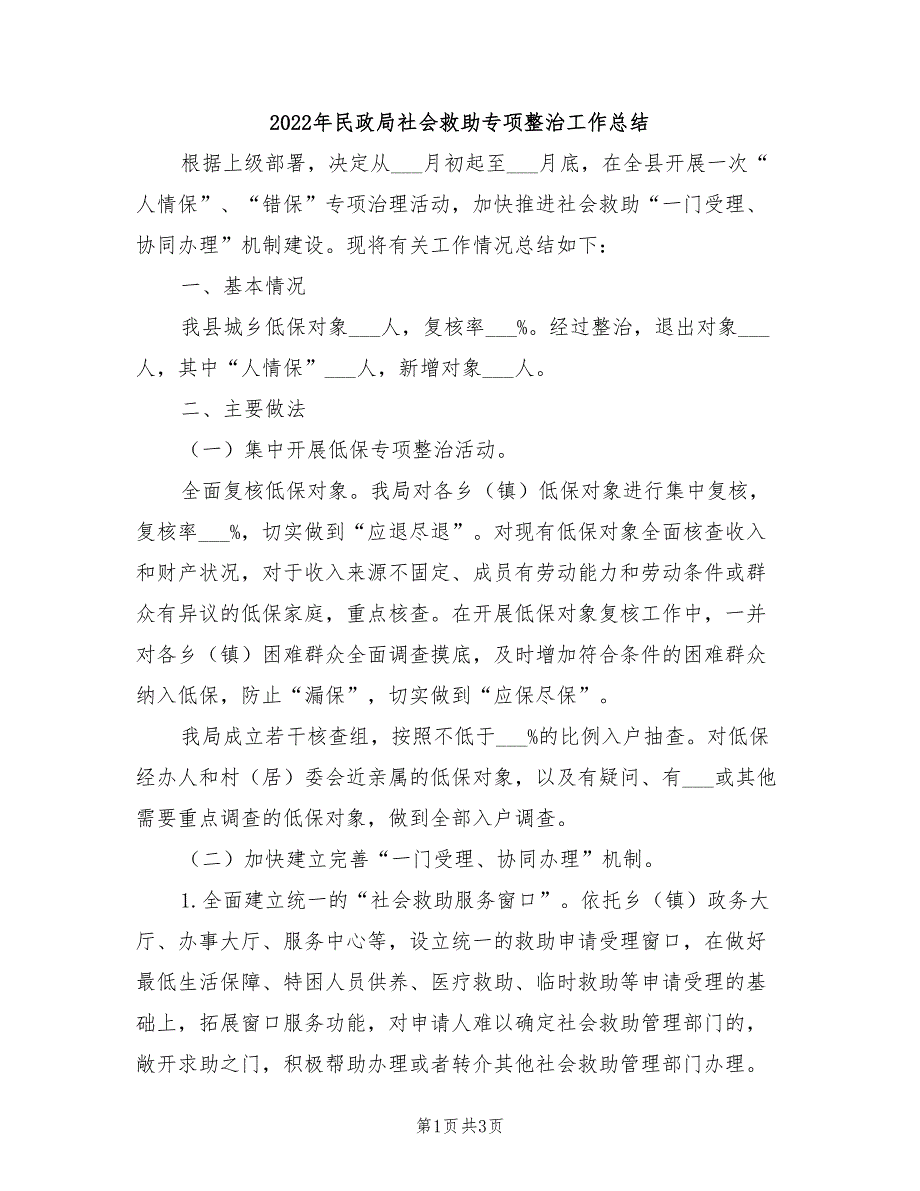 2022年民政局社会救助专项整治工作总结
根据上级部署，决定从___月初起至___月底，在全县开展一次“
人情保”、“错保”专项治理活动，加快推进社会救助“一门受理、
协同办理”机制建设。现将有关工作情况总结如下：
一、基本情况
我县城乡低保对象___人，复核率___%。经过整治，退出对象___
人，其中“人情保”___人，新增对象___人。
二、主要做法
（一）集中开展低保专项整治活动。
全面复核低保对象。我局对各乡（镇）低保对象进行集中复核，
复核率___%，切实做到“应退尽退”。对现有低保对象全面核查收入
和财产状况，对于收入来源不固定、成员有劳动能力和劳动条件或群
众有异议的低保家庭，重点核查。在开展低保对象复核工作中，一并
对各乡（镇）困难群众全面调查摸底，及时增加符合条件的困难群众
纳入低保，防止“漏保”，切实做到“应保尽保”。
我局成立若干核查组，按照不低于___%的比例入户抽查。对低保
经办人和村（居）委会近亲属的低保对象，以及有疑问、有___或其他
需要重点调查的低保对象，做到全部入户调查。
（二）加快建立完善“一门受理、协同办理”机制。
1.全面建立统一的“社会救助服务窗口”。依托乡（镇）政务大
厅、办事大厅、服务中心等，设立统一的救助申请受理窗口，在做好
最低生活保障、特困人员供养、医疗救助、临时救助等申请受理的基
础上，拓展窗口服务功能，对申请人难以确定社会救助管理部门的，
敞开求助之门，积极帮助办理或者转介其他社会救助管理部门办理。
第1页共3页